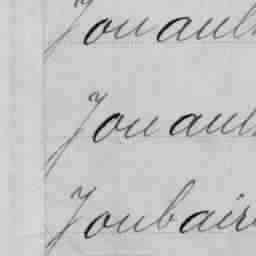 Jouaul
Jouaul
Joubair